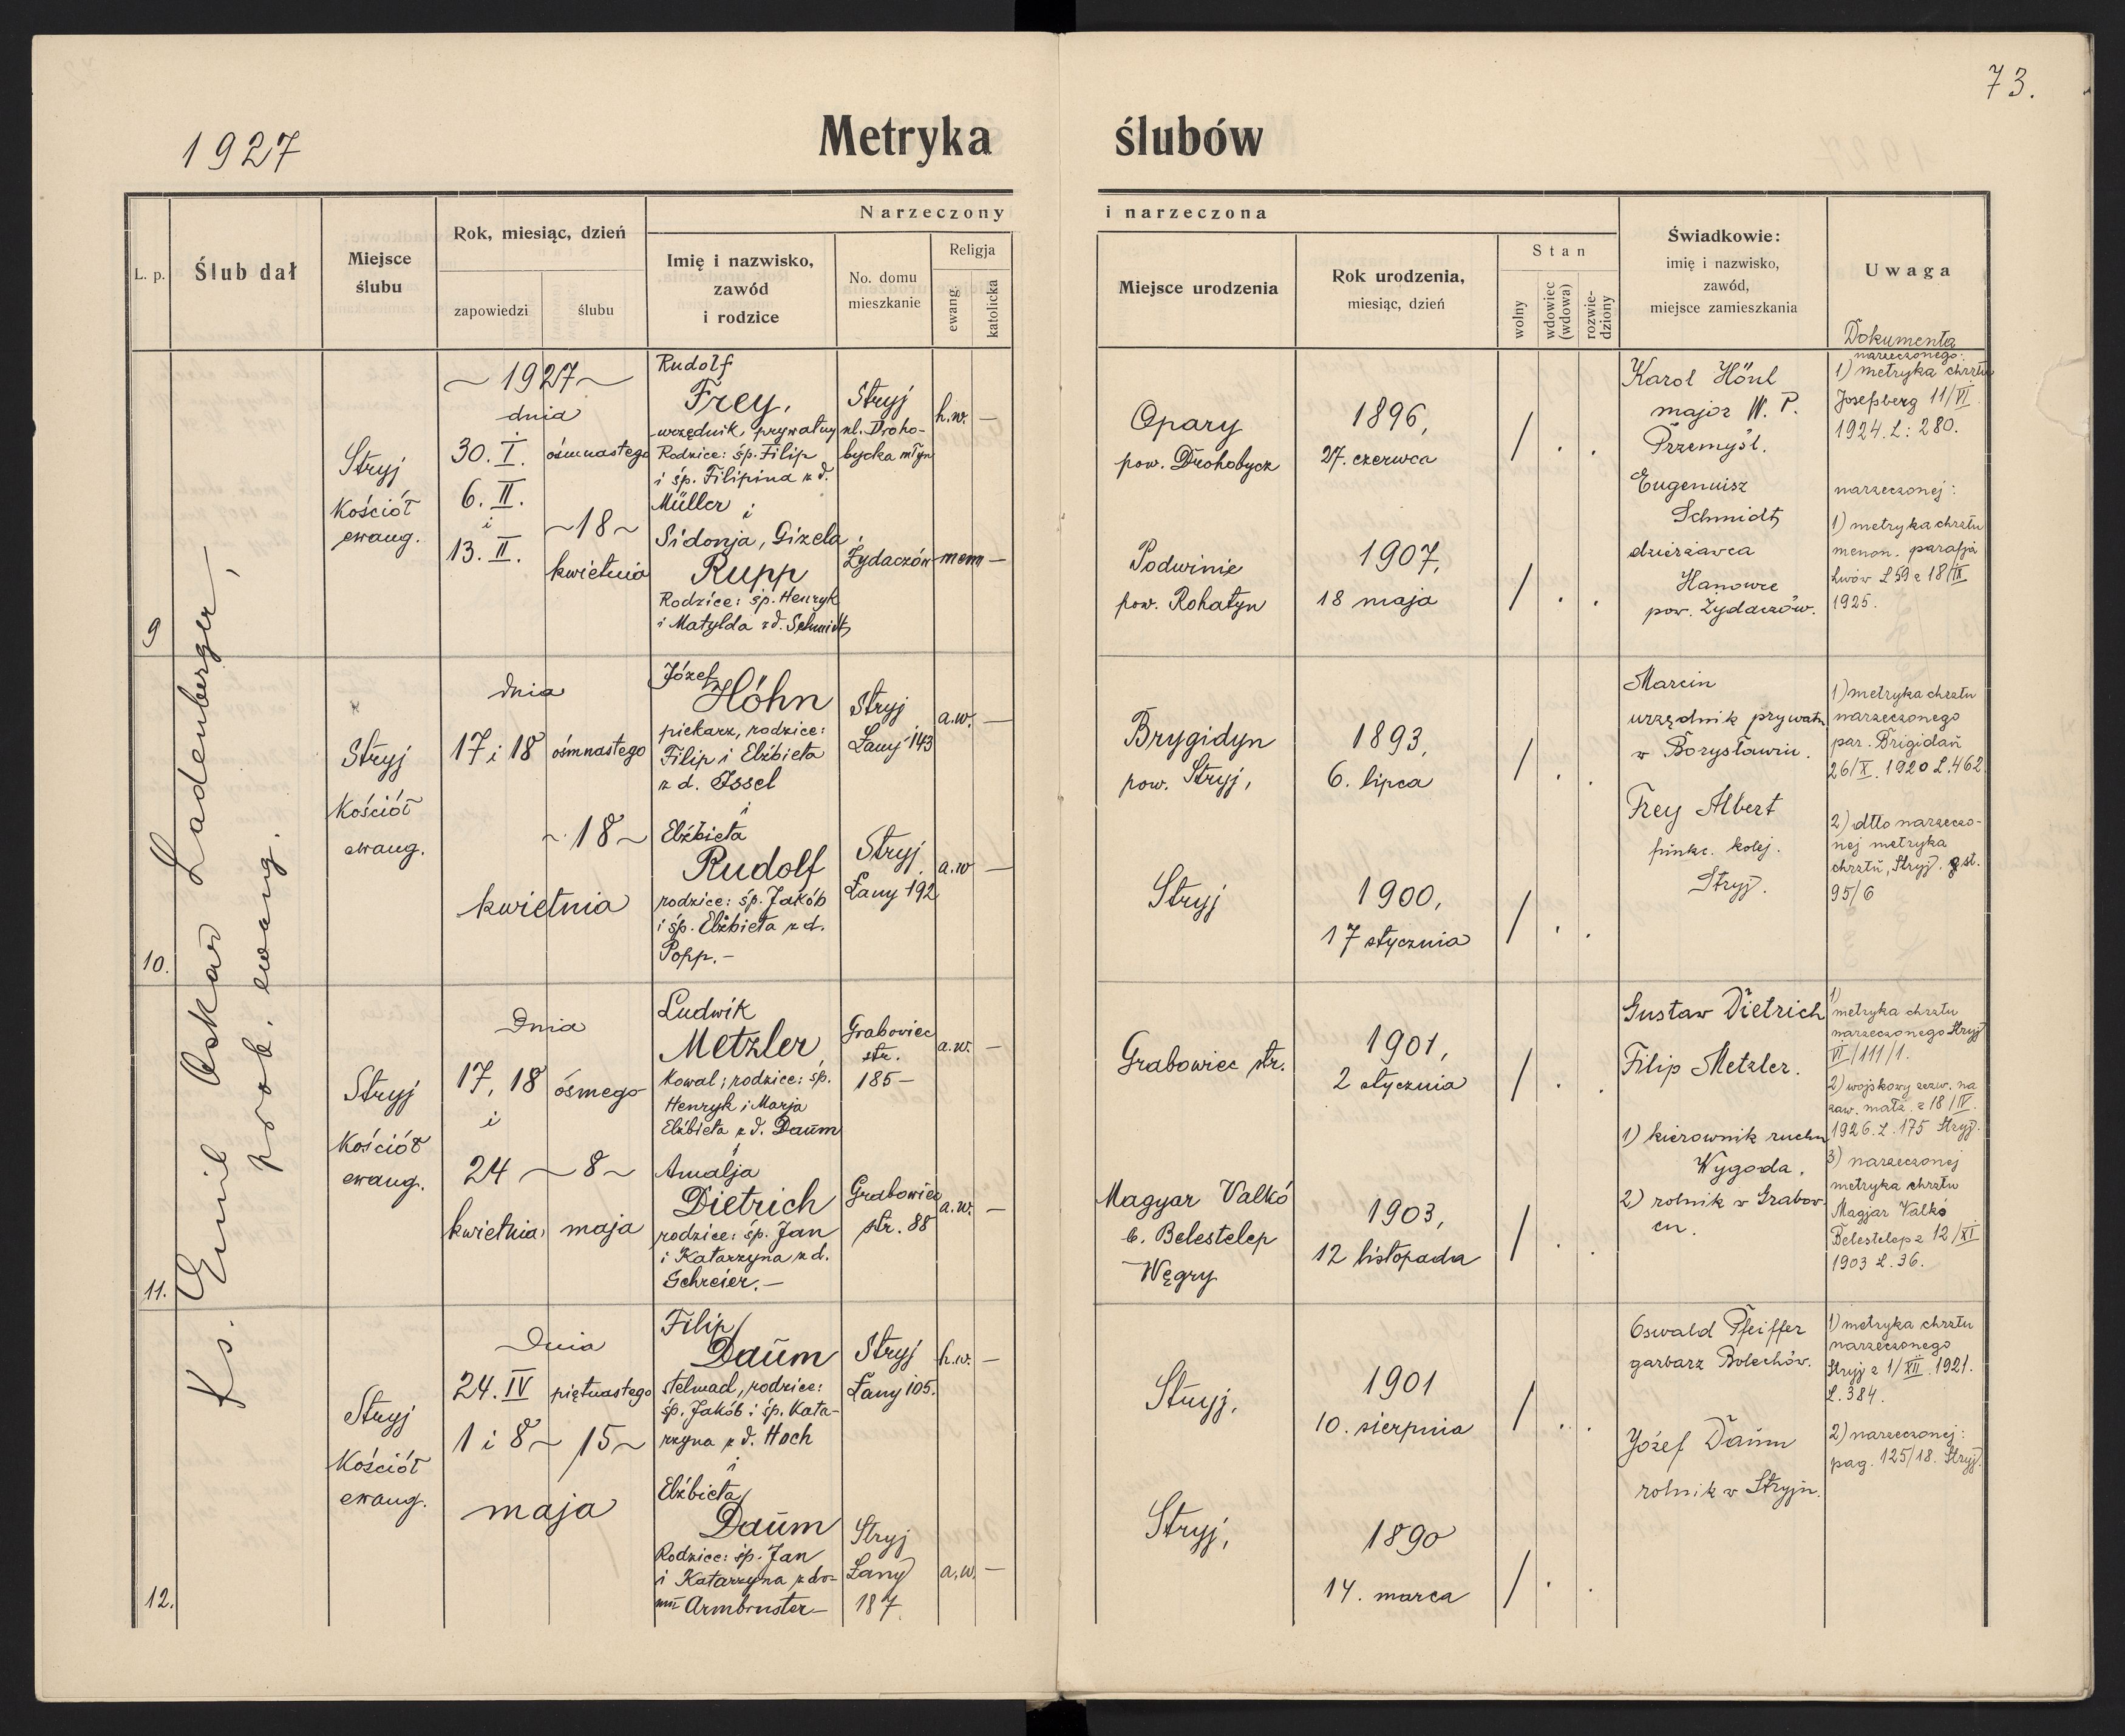 73.
1927
Metryka ślubów
L. p.
Ślub dał
Miejsce
ślubu
Rok, miesiąc, dzień
zapowiedzi
ślubu
Narzeczony
Imię i nazwisko,
zawód
i rodzice
No. domu
mieszkanie
Religja
ewang.
katolicka
i narzeczona
Miejsce urodzenia
Rok urodzenia,
miesiąc, dzień
Stan
wolny
wdowiec
(wdowa)
rozwie-
dziony
Świadkowie:
imię i nazwisko,
zawód,
miejsce zamieszkania
Uwaga
Ks. Emil Oskar Ladenberger,
prob. ewang.
9
Stryj
Kościół
ewang.
~ 1927 ~
dnia
30. I.
6. II.
i
13. II.
ośmnastego
~ 18 ~
kwietnia
Rudolf
Frey,
urzędnik, prywatny
Rodzice: śp. Filip
i śp. Filipina z d.
Müller i
Sidonja, Gizela
Rupp
Rodzice: śp. Henryk
i Matylda z d. Schmidt
Stryj
ul. Droho-
bycka młyn
Żydaczów
h.w. —
menn —
Opary
pow. Drohobycz
Podwinie
pow. Rohatyn
1896,
27. czerwca
1907,
18 maja
/ . .
/ . .
Karol Hönl
major W. P.
Przemyśl.
Eugenuisz
Schmidt
dzierżawca
Hanowce
pow. Żydaczów.
Dokumenta
narzeczonego:
1) metryka chrztu
Josefsberg 11/VI.
1924. L: 280.
narzeczonej:
1) metryka chrztu
menon. parafja
Lwów L 59 z 18/IX
1925.
10.
Stryj
Kościół
ewang.
dnia
17 i 18
ośmnastego
~ 18 ~
kwietnia
Józef
Höhn
piekarz, rodzice:
Filip i Elżbieta
z d. Issel
i
Elżbieta
Rudolf
rodzice: śp. Jakób
i śp. Elżbieta z d.
Popp. –
Stryj
Łany 143
Stryj
Łany 192
a.w. —
a.w —
Brygidyn
pow. Stryj,
Stryj
1893,
6. lipca
1900,
17 stycznia
/ . .
/ . .
Marcin
urzędnik prywatn
w Borysławiu.
Frey Albert
funkc. kolej.
Stryj.
1) metryka chrztu
narzeczonego
par. Brigidau
26/X. 1920 L. 462
2) dtto narzeczo-
nej metryka
chrztu, Stryj.
95/6
11.
Stryj
Kościół
ewang.
Dnia
17, 18
i
24
kwietnia
ósmego
~ 8 ~
maja
Ludwik
Metzler,
kowal; rodzice: śp.
Henryk i Marja
Elżbieta z d. Daum
i
Amalja
Dietrich
rodzice: śp. Jan
i Katarzyna z d.
Schreier. –
Grabowiec
str.
185 –
Grabowiec
str. 88
a.w. —
a.w. —
Grabowiec str.
Magyar Valkó
b. Belestelep
Węgry
1901,
2 stycznia
1903,
12 listopada
/ . .
/ . .
Gustaw Dietrich
Filip Metzler.
1) kierownik ruchu
Wygoda.
2) rolnik w Grabow-
cu.
1)
metryka chrztu
narzeczonego Stryj
VI/111/1.
2) wojskowy zezw. na
zaw. małż. z 18/IV.
1926. L. 175 Stryj.
3) narzeczonej
metryka chrztu
Magjar Valkó
Belestelep z 12/XI
1903 L. 36.
12.
Stryj
Kościół
ewang.
Dnia
24. IV
1 i 8 ~
piętnastego
15 ~
maja
Filip
Daum
stelmach, rodzice:
śp. Jakób i śp. Kata-
rzyna z d. Hoch
i
Elżbieta
Daum
Rodzice: śp. Jan
i Katarzyna z do-
mu Armbruster –
Stryj
Łany 105.
Stryj
Łany
187
h.w. —
a.w. —
Stryj,
Stryj,
1901
10. sierpnia
1890
14. marca
/ . .
/ . .
Oswald Pfeiffer
garbarz Bolechów.
Józef Daum
rolnik w Stryju.
1) metryka chrztu
narzeczonego
Stryj z 1/XII. 1921.
L. 384.
2) narzeczonej:
pag. 125/18. Stryj.